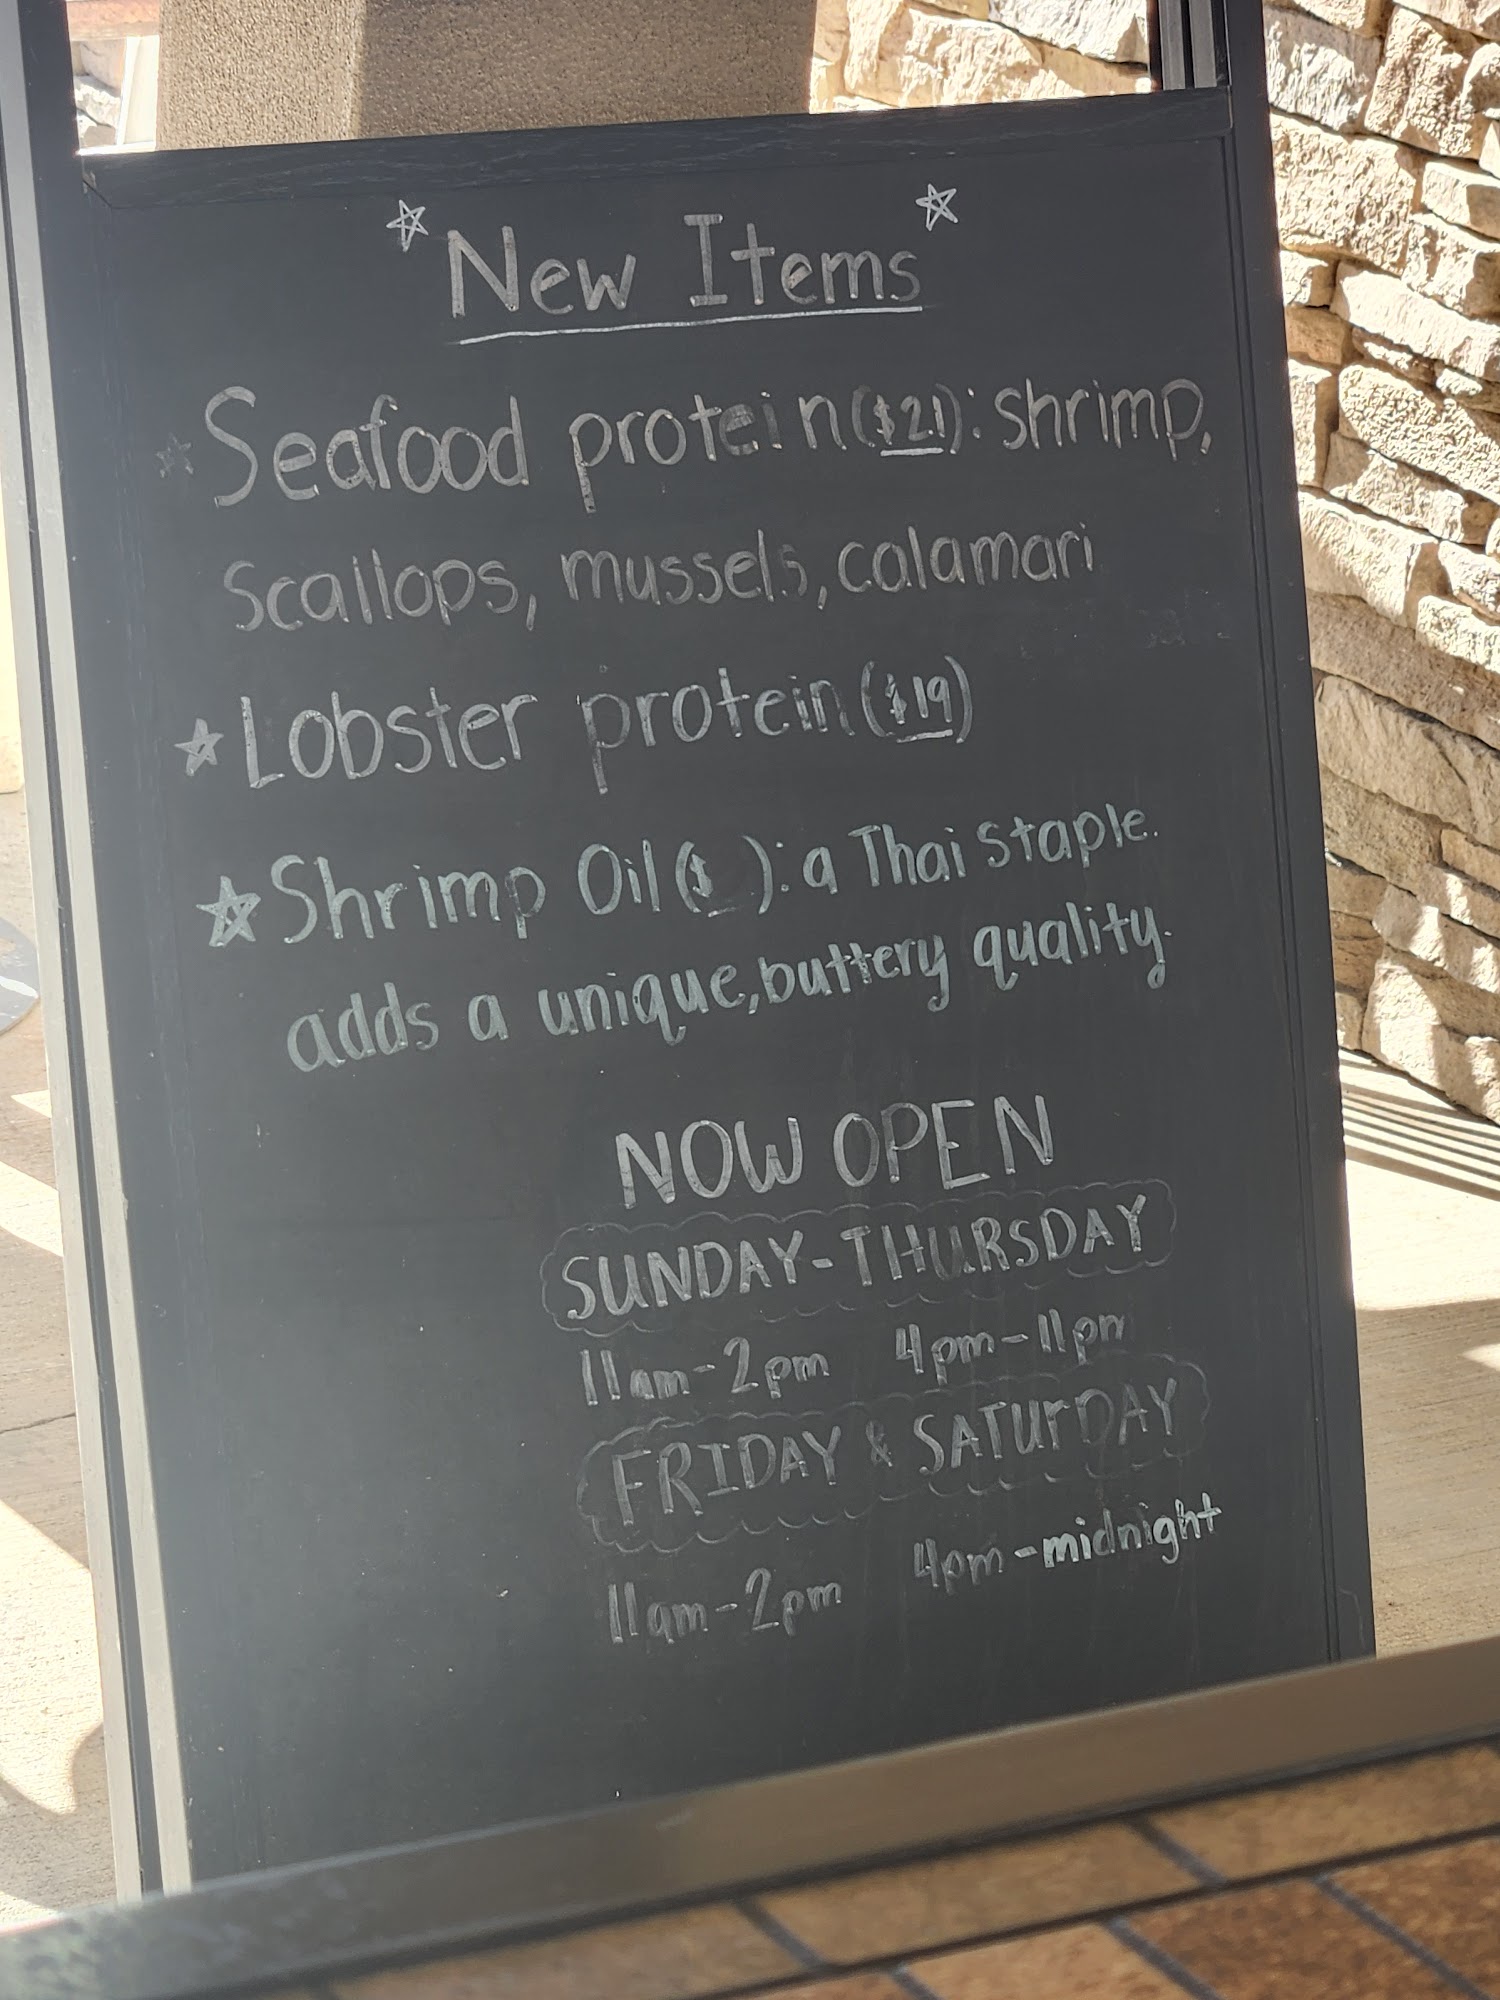 New Items
Seafood protein ($21): shrimp,
Scallops, mussels, calamari
Lobster protein ($19)
Shrimp Oil ($ ): a Thai staple.
adds a unique, buttery quality.
NOW OPEN
SUNDAY-THURSDAY
11am-2pm 4pm-11pm
FRIDAY & SATURDAY
11am-2pm 4pm-midnight